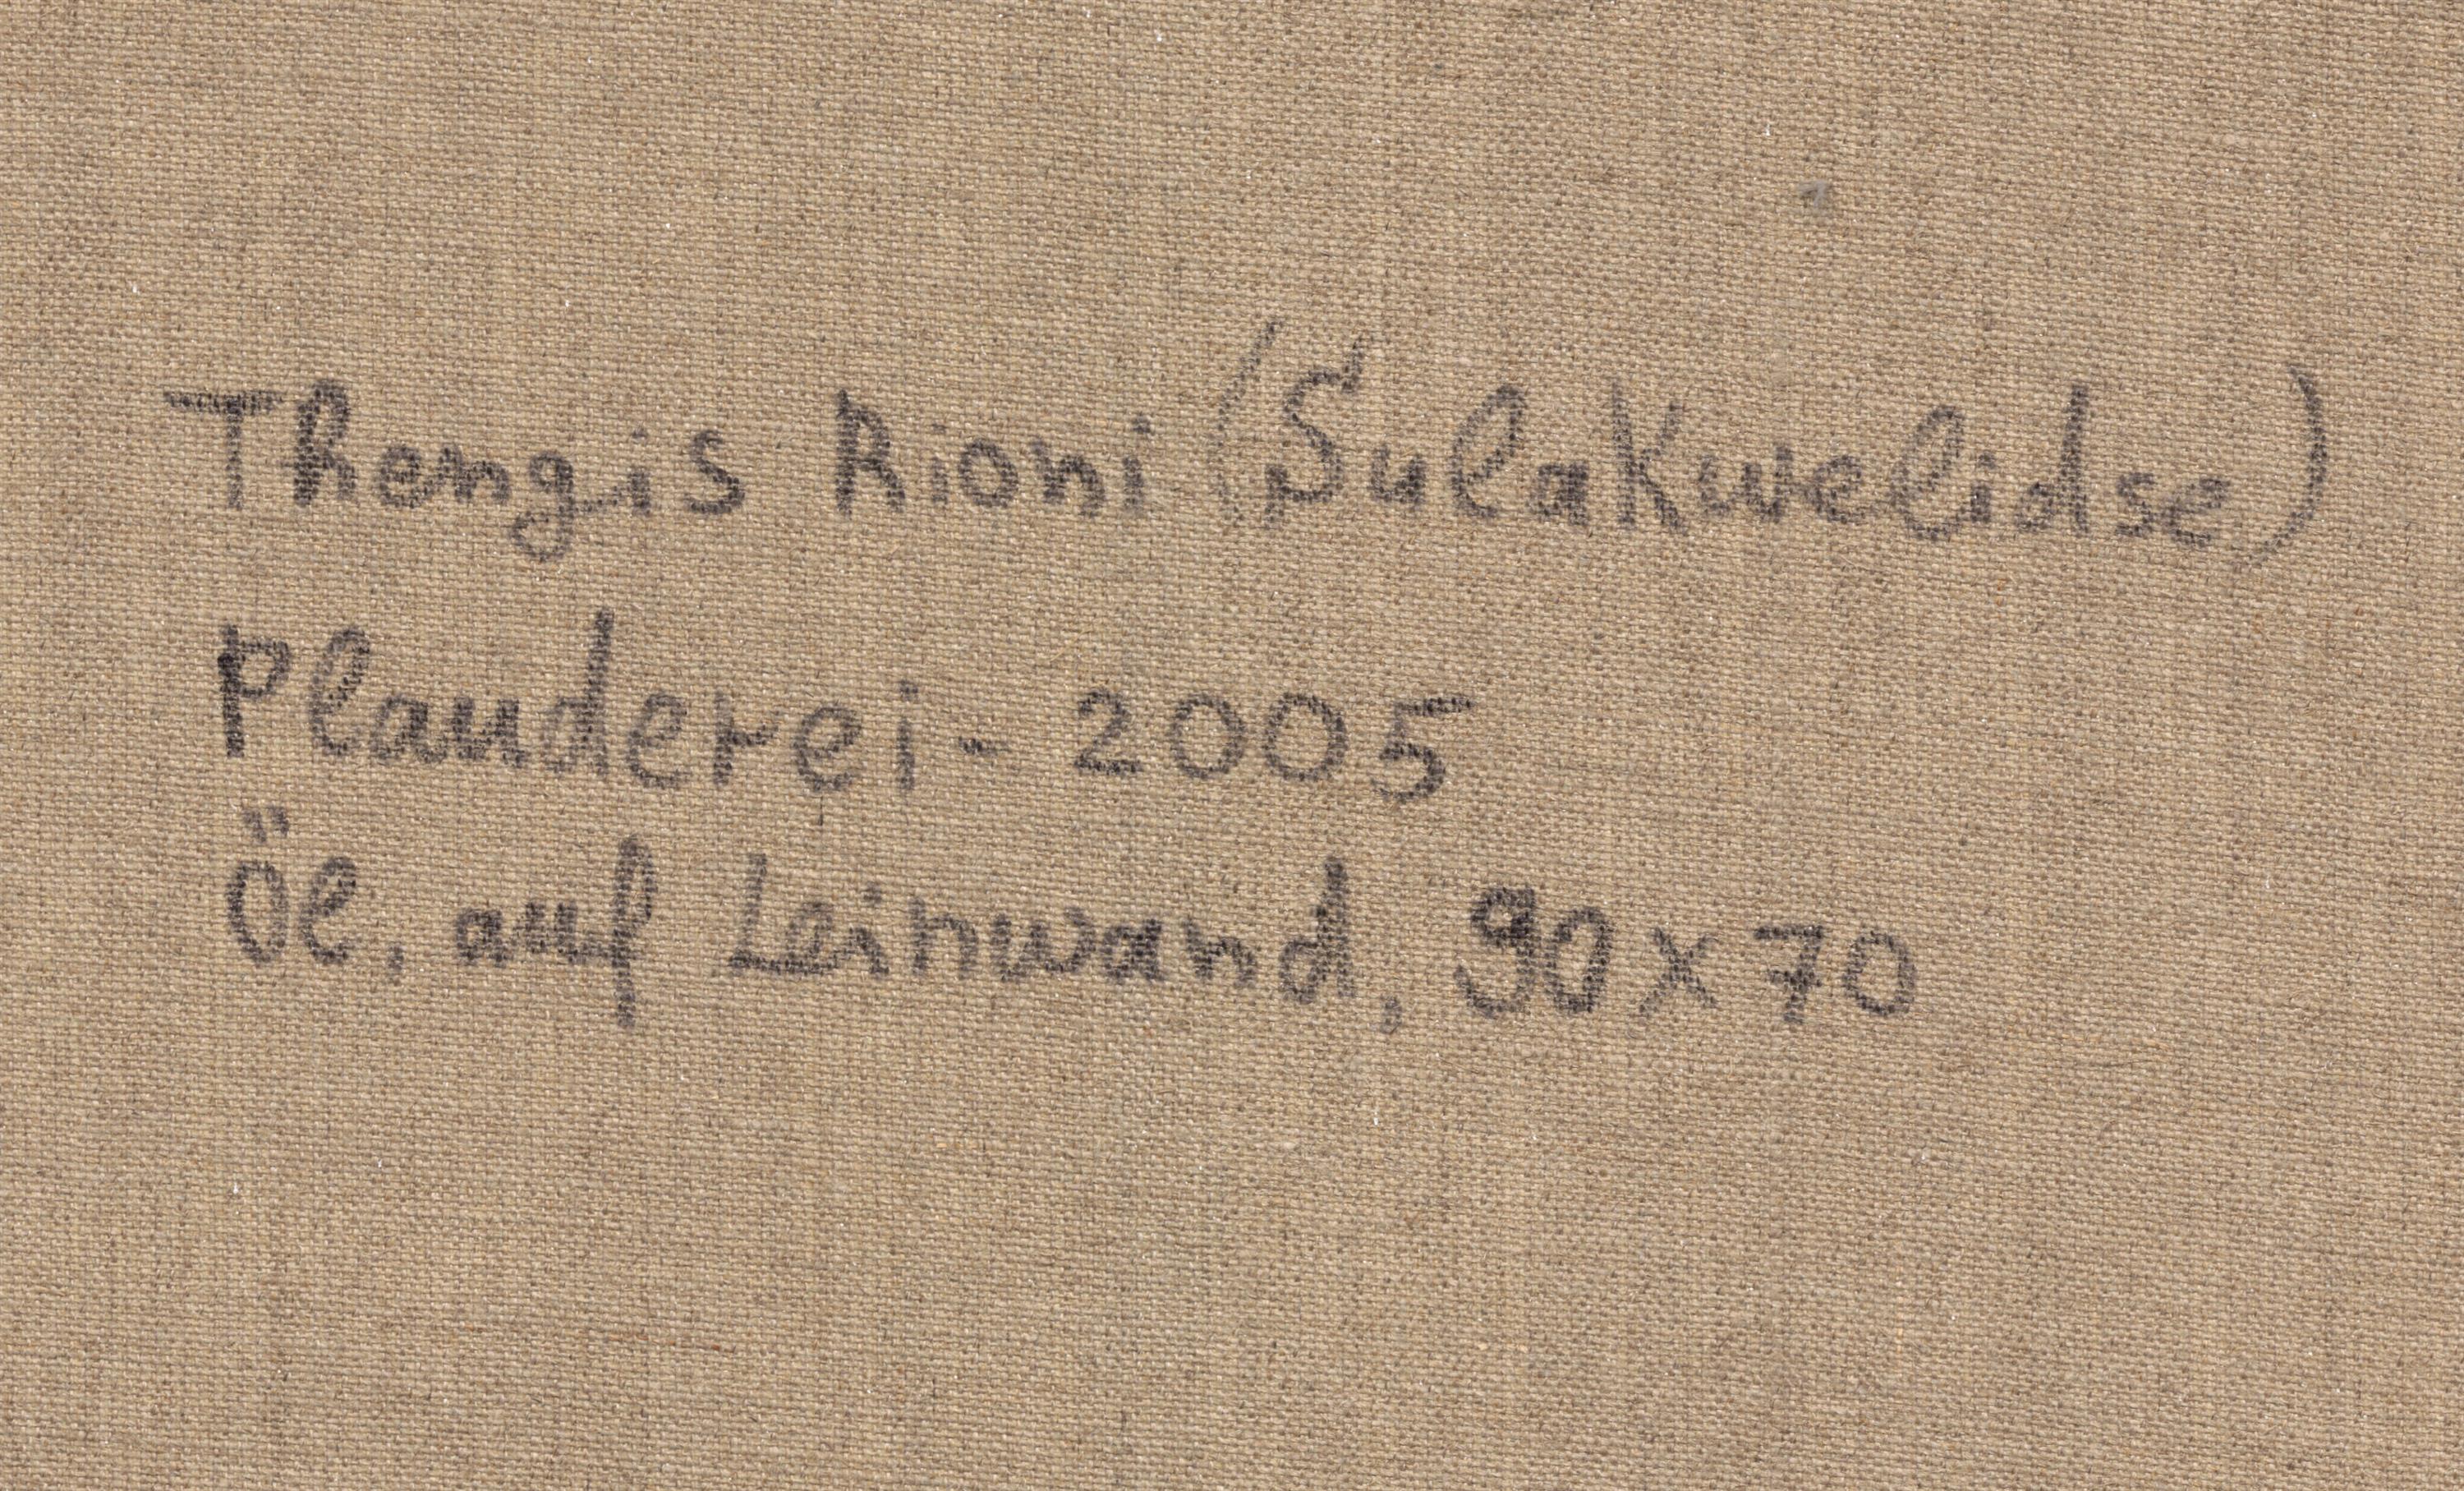 Thengis Rioni (Sulakwelidse)
Plauderei - 2005
Öl, auf Leinwand, 90x70